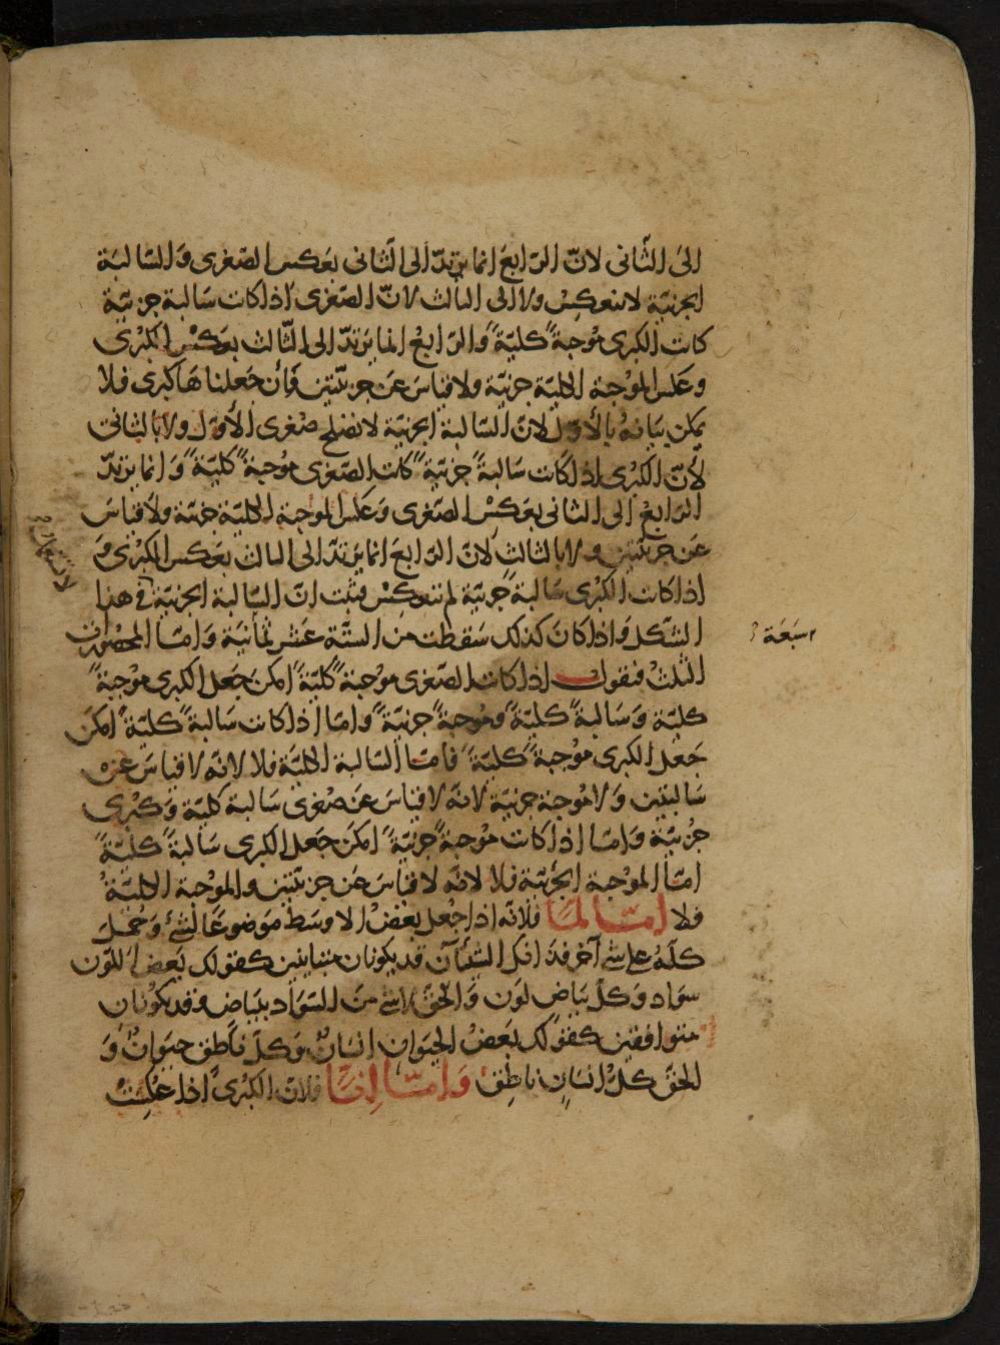 الى الثانى لانّ الرّابع انما يرتدّ الى الثانى بعكس الصّغرى وَالسّالبَة
الجزئيّة لا تنعكسْ ولا الى الثالث لانّ الصّغرى اذا كانت سَالبة جزئيّة
كانت الكبرى مُوجبةً كليّةً وَالرّابعْ انما يرتدّ الى الثّالث بعكسْ الكبْرى
وعكس الموجبة الكليّة جزئيّة ولا قياسَ عَن جزئيّتين فَان جَعلناهَا كبرى فلا
يمكن بيَانهُ بالأوّل لانّ السّالبة الجزئيّة لا تصْلح صُغرى الأوّل ولا بالثانى
لأنّ الكبْرى اذا كانت سَالبةً جزئيّةً كانت الصّغرى مُوجبةً كليّةً وَانما يرتدّ
الرّابعْ الى الثانى بعكسْ الصّغرى وَعكس الموجبة الكليّة جزئيّة ولا قياسَ
عَن جزئيّتين ولا بالثالثِ لانّ الرّابعَ انما يرتدّ الى الثالث بعكس الكبْرى وَ
اذا كانت الكبْرى سَالبةً جزئيّة لم تنعكِسْ فثبت انّ السّالبة الجزئيّة فى هذا
الشكل وَاذا كانَ كذلك سَقطت من الستّة عَشر ثمانية وَامّا المحْصُورات
الثلثْ فنقول اذا كانت الصّغرى مُوجبةً كليّةً امكن جَعل الكبرى مُوجبةً
كليّة وَسَالبةً كليّةً وَمُوجبةً جزئيّةً وامّا اذا كانت سَالبةً كليّةً امكنَ
جَعل الكبرى مُوجبةً كليّةً فامّا السّالبة الكليّة فلا لانّه لا قياسَ عَنْ
سَالبتين وَلا مُوجبة جزئيّة لانّه لا قياسَ عَن صُغرى سَالبة كليّة وَكبْرى
جزْئيّة وَامّا اذا كانت مُوجبةً جزئيّةً امكنَ جَعل الكبرى سَالبةً كليّةً
امّا الموْجبة الجزئيّة فلا لانّه لا قياسَ عَن جزئيّتين والموْجبة الكليّةْ
فلا امّا لمَا فلانّه اذا جُعل بعْضُ الاوسَط مَوضوعًا لشئ وَحُملَ
كلّهُ على شئ آخر فذانك الشيئآن قد يكونان متباينين كقولك بعَضُ اللّون
سوَاد وَكلّ بيَاضٍ لوَن وَالحقّ لا شئ منَ السّوَاد ببيَاض وقد يكوْنان
متوافقين كقولك بعَضْ الحيَوان انسَانٌ وَكلّ ناطق حيَوانٌ وَ
الحقّ كلّ انسَانٍ ناطِق وَامّا لنا فلانّ الكبْرى اذا عُكِسَتْ
سَبعَة